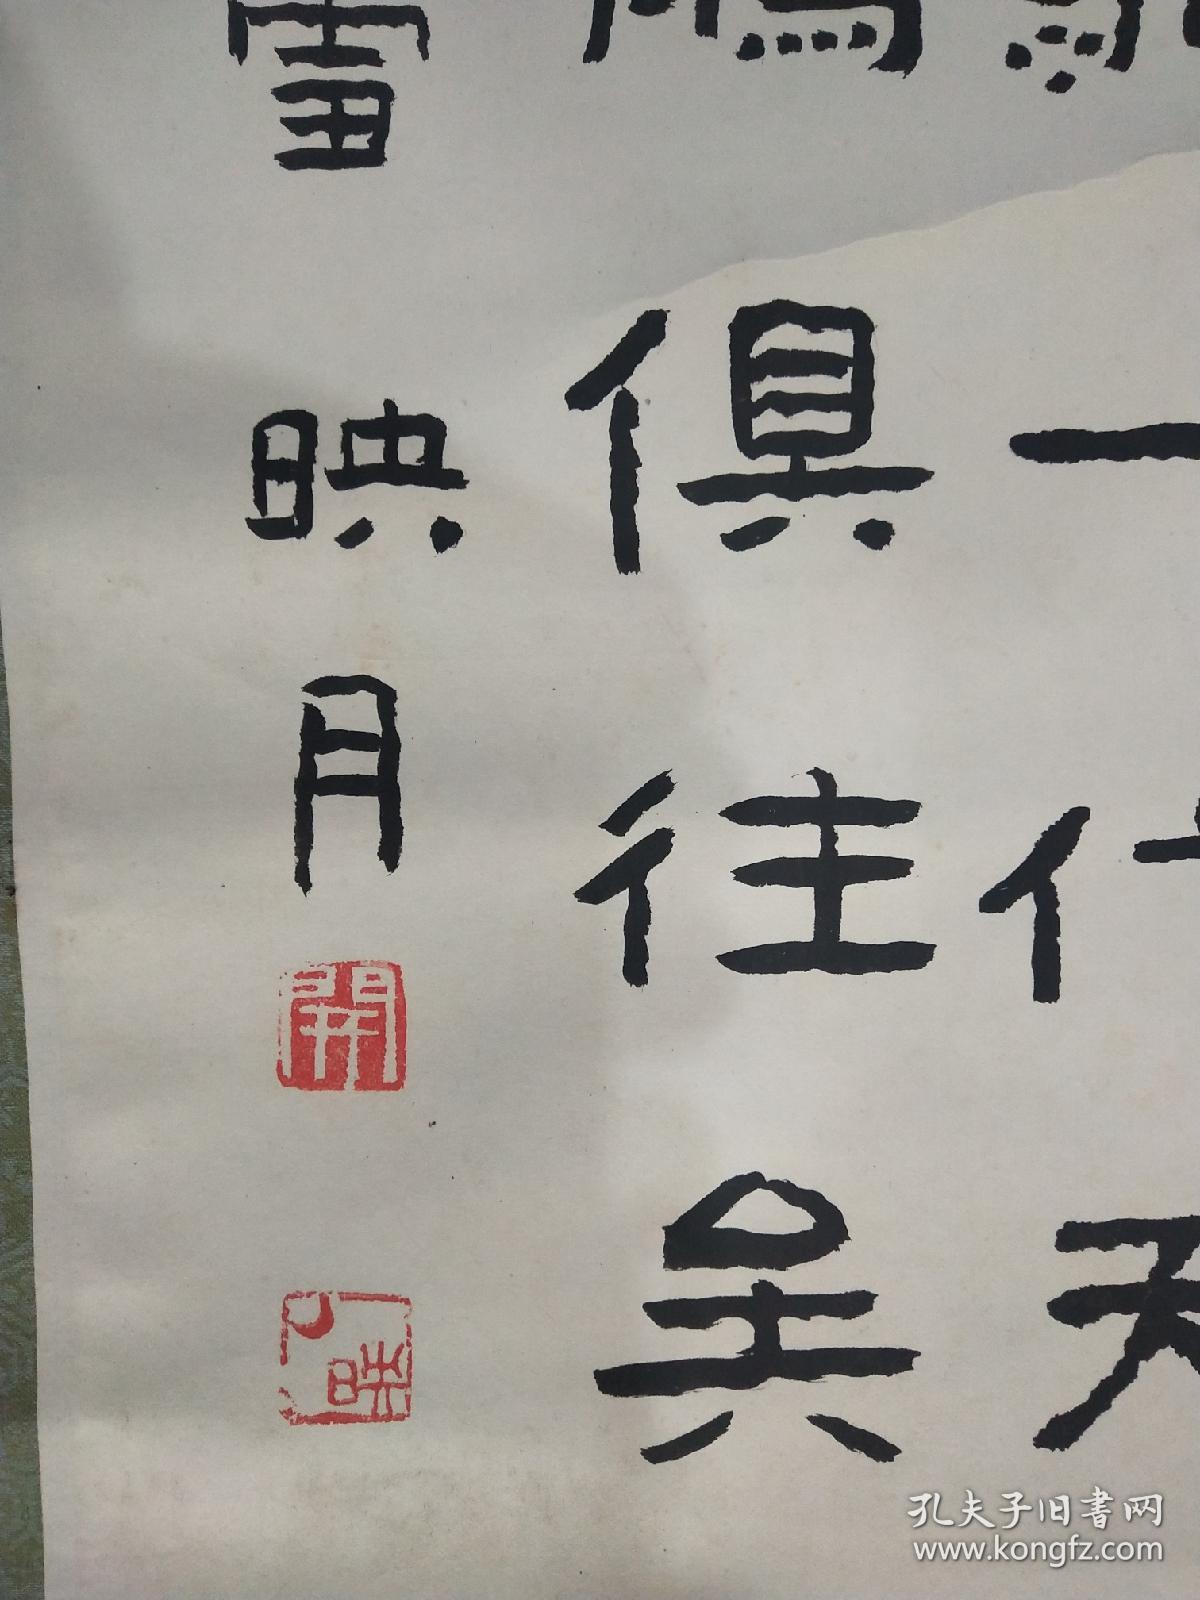 一代天
俱往矣
雪映月
開
映
孔夫子旧书网
www.kongfz.com